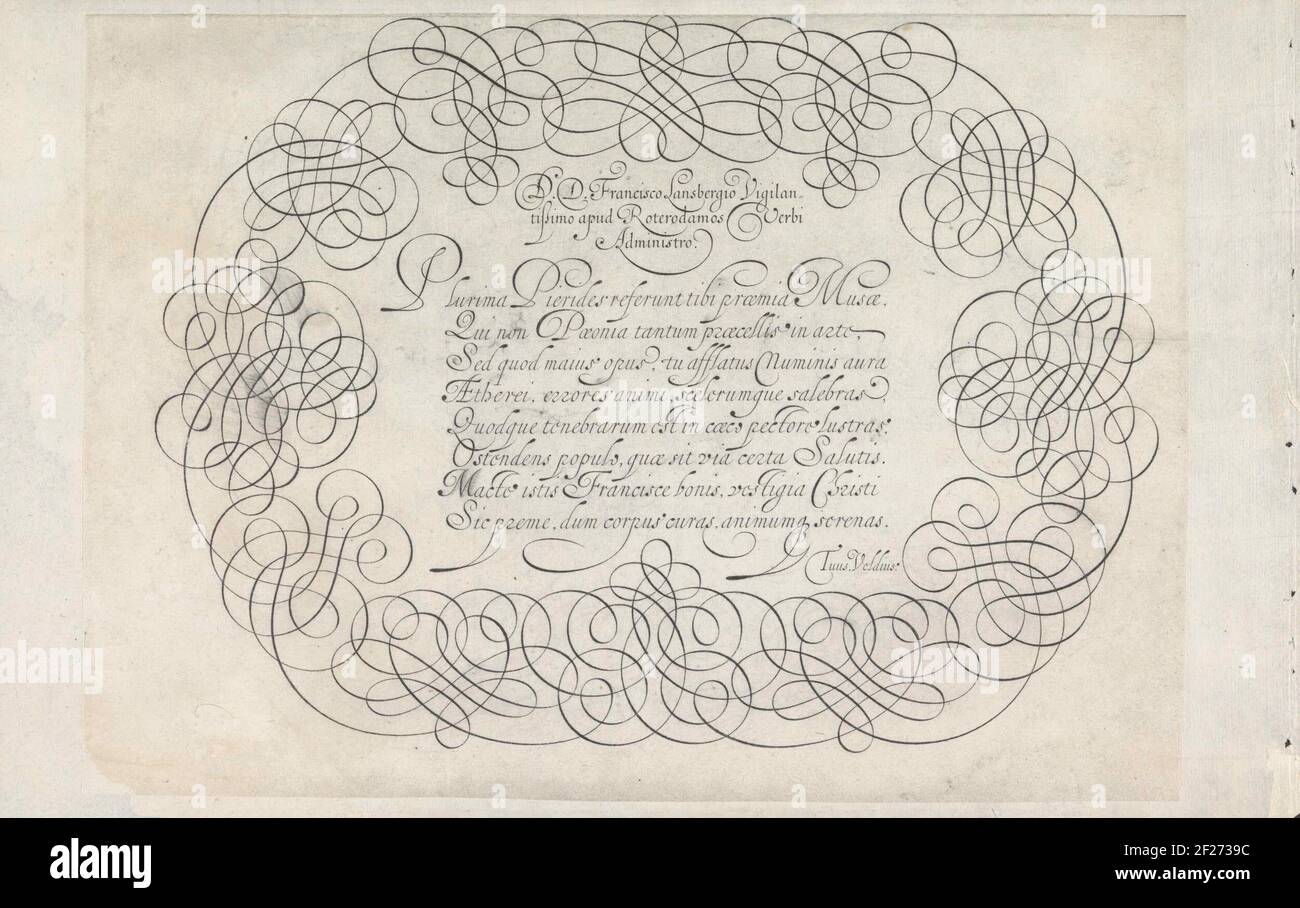 D. D. Francisco Lansbergio Vigilan-
tissimo apud Roterodamos Verbi
Administro.
Plurima Pierides referunt tibi præmia Musæ,
Qui non Pæonia tantum præcellis in arte,
Sed quod maius opus, tu afflatus Numinis aura
Ætherei, errores animi, scelerumque salebras,
Quodque tenebrarum est in cæco pectore lustras,
Ostendens populo, quæ sit via certa Salutis.
Macte istis Francisce bonis, vestigia Christi
Sic preme, dum corpus curas, animumq serenas.
Tuus Veldius.
alamy
alamy
Image ID: 2F2739C
www.alamy.com